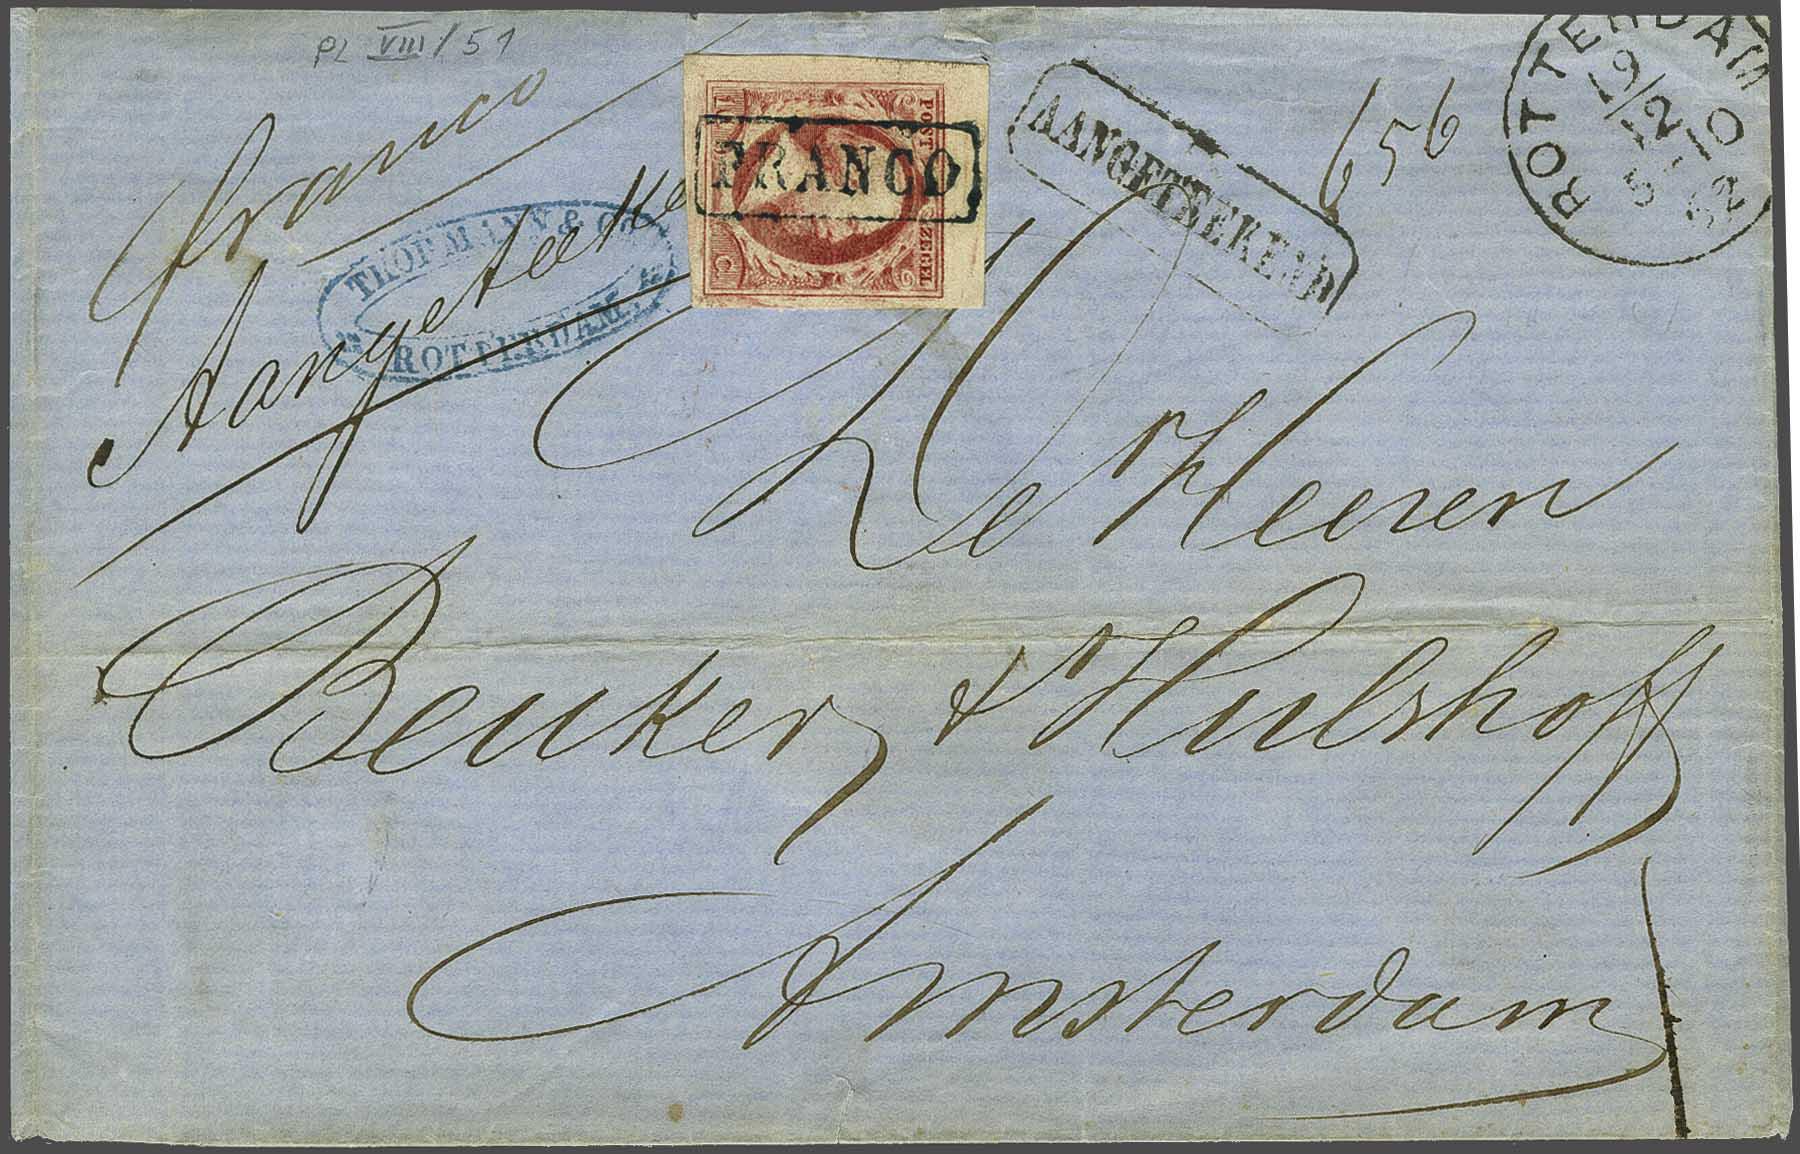 PL VIII/51
franco
Aangeteeke
THORMANN & Co.
ROTTERDAM
POST ZEGEL
10 C
FRANCO
AANGETEEKEND
656
ROTTERDAM
19/2
De Heeren
Beuker & Hulshoff
Amsterdam